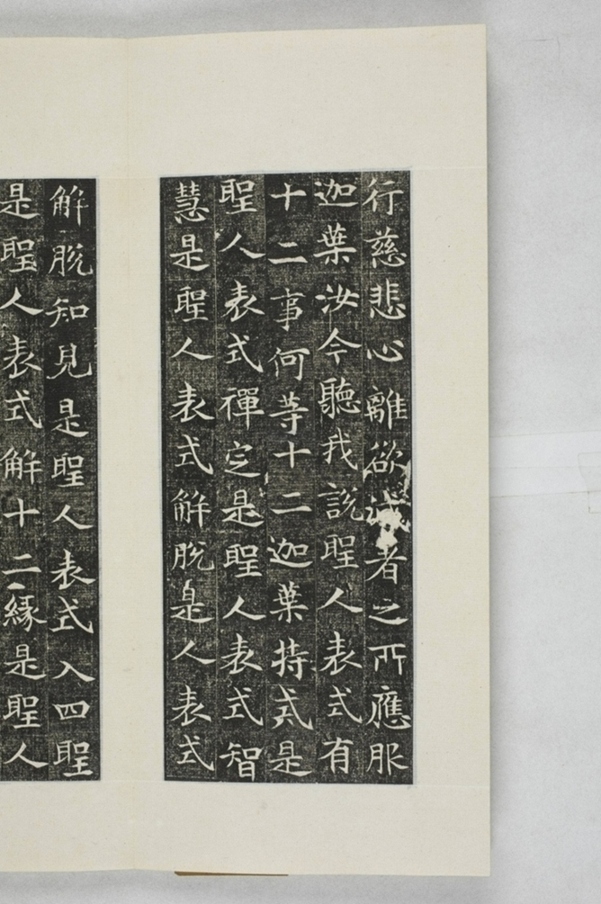 行慈悲心離欲者之所應服
迦葉汝今聽我說聖人表式有
十二事何等十二迦葉持戒是
聖人表式禪定是聖人表式智
慧是聖人表式解脫是人表式
解脫知見是聖人表式入四聖
是聖人表式解十二緣是聖人